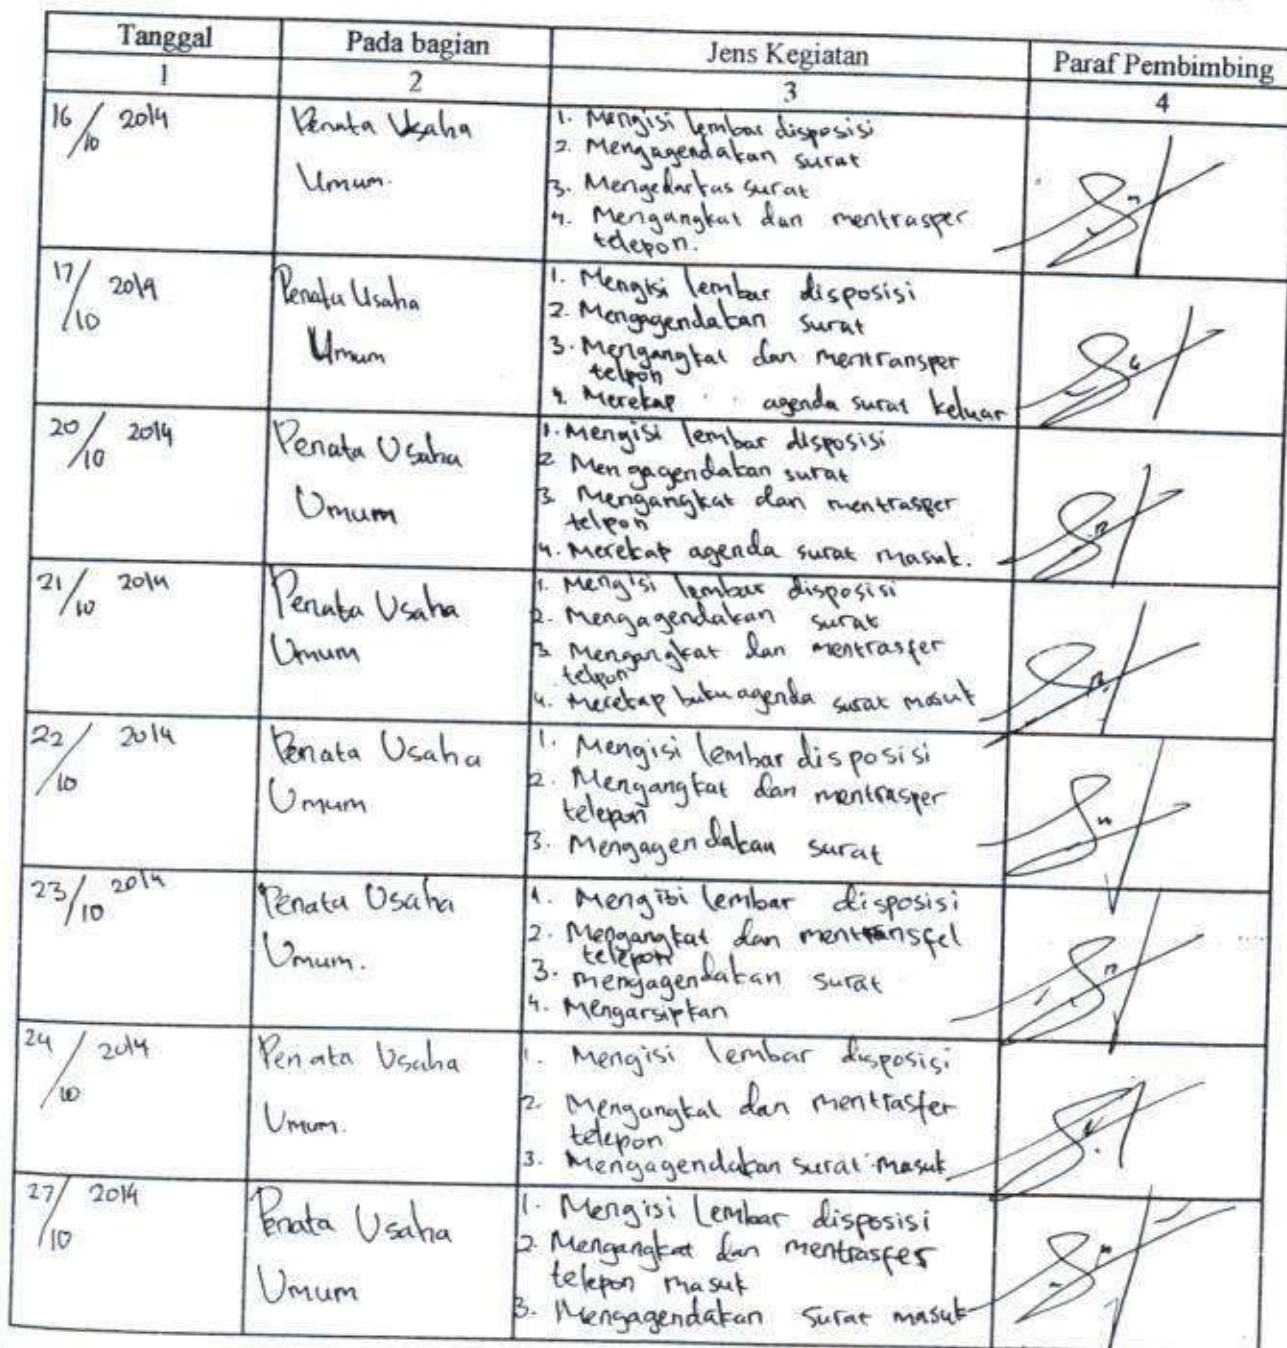 Tanggal Pada bagian Jens Kegiatan Paraf Pembimbing
1 2 3 4
16/10 2014 Penata Usaha Umum.
1. Mengisi lembar disposisi
2. Mengagendakan surat
3. Mengedarkas surat
4. Mengangkat dan mentrasper
telepon.
17/10 2014 Penata Usaha Umum
1. Mengisi lembar disposisi
2. Mengagendakan surat
3. Mengangkat dan mentransper
telpon
4. Merekap agenda surat keluar
20/10 2014 Penata Usaha Umum
1. Mengisi lembar disposisi
2 Mengagendakan surat
3. Mengangkat dan mentrasper
telpon
4. Merekap agenda surat masuk.
21/10 2014 Penata Usaha Umum
1. Mengisi lembar disposisi
2. Mengagendakan surat
3 Mengangkat dan mentrasfer
telpon
4. Merekap buku agenda surat masuk
22/10 2014 Penata Usaha Umum
1. Mengisi lembar disposisi
2. Mengangkat dan mentrasper
telepon
3. Mengagendakan surat
23/10 2014 Penata Usaha Umum.
1. Mengisi lembar disposisi
2. Mengangkat dan mentransfel
telepon
3. mengagendakan surat
4. Mengarsipkan
24/10 2014 Penata Usaha Umum.
1. Mengisi lembar disposisi
2. Mengangkat dan mentrasfer
telepon
3. Mengagendakan surat masuk
27/10 2014 Penata Usaha Umum
1. Mengisi lembar disposisi
2. Mengangkat dan mentrasfer
telepon masuk
3. Mengagendakan surat masuk